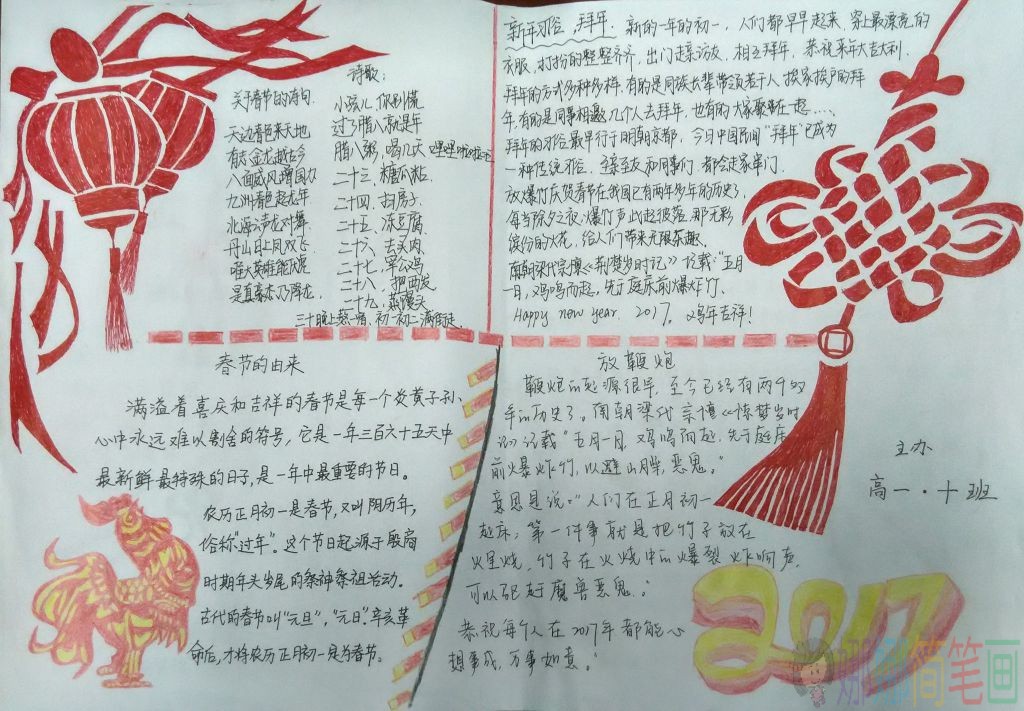 诗歌:
关于春节的诗句.
天边春色来天地
有志金龙越古今
八面威风增国力
九州春色起龙年
北海声龙对舞.
丹山日上凤双飞.
唯大英雄能伏虎
是真豪杰乃降龙.
小孩儿,你别慌
过了腊八就是年
腊八粥,喝几天 哩哩啦啦
二十三,糖瓜粘.
二十四,扫房子.
二十五,冻豆腐.
二十六,去买肉.
二十七,宰公鸡
二十八,把面发
二十九,蒸馒头
三十晚上熬一宵、初一初二满街走.
新年习俗,拜年.新的一年的初一,人们都早早起来,穿上最漂亮的
衣服,打扮的整整齐齐,出门走亲访友,相互拜年,恭祝来年大吉大利.
拜年的方式多种多样,有的是同族长辈带领若干人挨家挨户的拜
年.有的是同事相邀几个人去拜年,也有的大家聚在一起......
拜年的习俗最早行于明朝京都,今日中国民间“拜年”已成为
一种传统习俗,至亲至友和同事们都会走家串门.
放爆竹庆贺春节在我国已有两千多年的历史了,
每当除夕之夜,爆竹声此起彼落,那无彩
缤纷的火花,给人们带来无限乐趣.
南朝梁代宗懔《荆梦岁时记》记载:“五月
一日,鸡鸣而起,先于庭床前爆炸竹.
Happy new year. 2017. 鸡年吉祥!
春节的由来
满溢着喜庆和吉祥的春节是每一个炎黄子孙、
心中永远难以割舍的符号,它是一年三百六十五天中
最新鲜最特殊的日子,是一年中最重要的节日。
农历正月初一是春节,又叫阴历年,
俗称“过年”。这个节日起源于殷商
时期年头岁尾的祭神祭祖活动。
古代的春节叫“元旦”,“元日”.辛亥革
命后,才将农历正月初一是为春节。
放鞭炮
鞭炮的起源很早,至今已经有两千多
年的历史了。南朝梁代宗懔《惊梦岁时
记》记载“五月一日,鸡鸣而起,先于庭床
前爆炸竹,以避山臊,恶鬼。”
意思是说:“人们在正月初一
起床,第一件事就是把竹子放在
火里烧,竹子在火烧中的爆裂炸响声
可以驱赶魔兽恶鬼。”
恭祝每个人在2017年都能心
想事成,万事如意。
主办
高一·十班
2017
简笔画